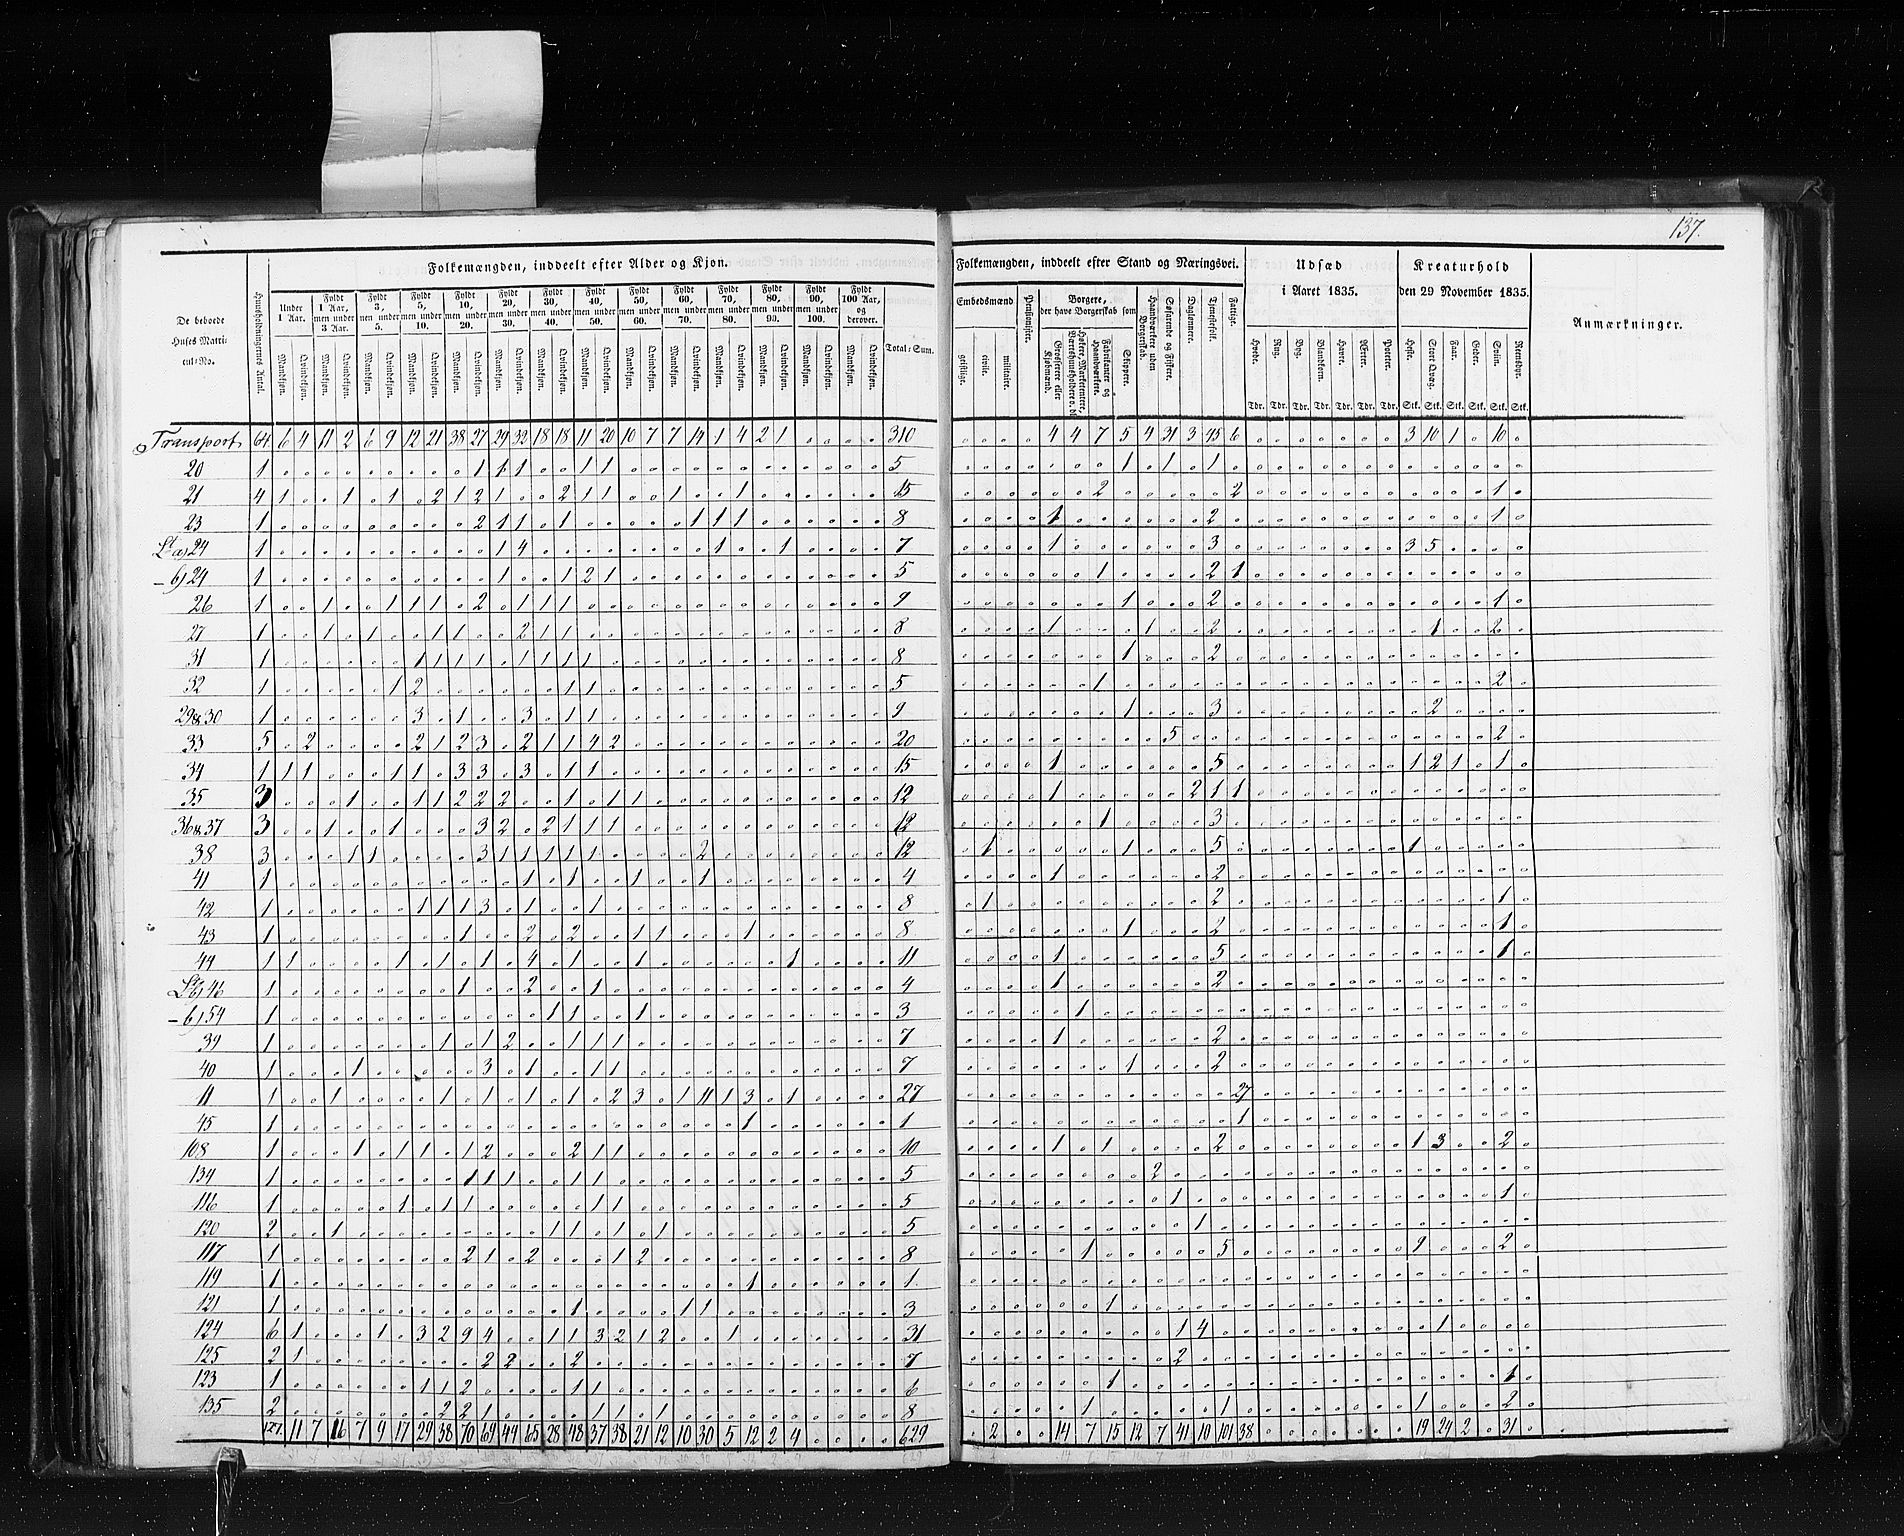 137.
Folkemængden, inddeelt efter Alder og Kjøn.
Folkemængden, inddeelt efter Stand og Næringsvei.
Udsæd
i Aaret 1835.
Kreaturhold
den 29 November 1835.
Anmærkninger.
De beboede
Huses Matri-
cul-No.
Huusholdningernes Antal.
Under 1 Aar.
Fyldt 1 Aar, men under 3 Aar.
Fyldt 3, men under 5.
Fyldt 5, men under 10.
Fyldt 10, men under 20.
Fyldt 20, men under 30.
Fyldt 30, men under 40.
Fyldt 40, men under 50.
Fyldt 50, men under 60.
Fyldt 60, men under 70.
Fyldt 70, men under 80.
Fyldt 80, men under 90.
Fyldt 90, men under 100.
Fyldt 100 Aar, og derover.
Mandkjøn. Qvindekjøn.
Total-Sum.
Embedsmænd
geistlige. civile. militaire.
Pensionister.
Borgere,
der have Borgerskab som
Grosserere eller Kjøbmænd.
Høkere, Marketentere, Værtshuusholdere o. dl.
Fabrikanter og Haandværkere.
Skippere.
Haandværkere uden Borgerskab.
Søfarende og Fiskere.
Daglønnere.
Tjenestefolk.
Fattige.
Hvede. Rug. Byg. Blandkorn. Havre. Ærter. Poteter.
Tdr. Tdr. Tdr. Tdr. Tdr. Tdr. Tdr.
Heste. Stort Qvæg. Faar. Geder. Sviin. Reensdyr.
Stk. Stk. Stk. Stk. Stk. Stk.
Transport 64 6 4 11 2 6 9 12 21 38 27 29 32 18 18 11 20 10 7 7 14 1 4 2 1 310 4 4 7 5 4 31 3 45 6 3 10 1 10
20 1 1 1 1 1 1 5 1 1 1
21 4 1 1 1 2 1 2 1 2 1 1 1 1 15 2 2 1
23 1 2 1 1 1 1 1 1 8 1 2 1
Lt a) 24 1 1 4 1 1 7 1 3 3 5
- b) 24 1 1 1 2 1 5 1 2 1
26 1 1 1 1 1 2 1 1 1 9 1 2 1
27 1 1 1 1 1 2 1 1 8 1 1 2 1 2
31 1 1 1 1 1 1 1 1 1 8 1 2
32 1 1 2 1 1 5 1 2
29 & 30 1 3 1 3 1 1 9 1 3 2
33 5 2 2 1 2 3 2 1 1 4 2 20 5 2
34 1 1 1 1 1 3 3 3 1 1 15 1 5 1 2 1 1
35 3 1 1 1 2 2 2 1 1 1 12 1 2 1 1
36 & 37 3 1 1 3 2 2 1 1 1 12 1 3
38 3 1 1 3 1 1 1 1 1 2 12 1 1 5 1
41 1 1 1 1 1 4 1 2
42 1 1 1 1 3 1 1 8 1 2 1
43 1 1 2 2 1 1 1 8 1 2 1
44 1 1 1 1 1 4 1 1 1 11 1 5 1
46 1 1 2 1 4 1 2
- b) 54 1 1 1 1 3 1
39 1 1 1 2 1 1 1 7 1 2
40 1 1 3 1 1 1 7 1 2
11 1 1 1 1 1 1 2 3 1 11 1 3 1 27 27
45 1 1 1 1
108 1 1 1 1 1 2 2 1 1 10 1 1 2 1 3 2
134 1 1 1 1 1 1 5 2
116 1 1 1 1 1 1 5 1 1
120 2 1 1 1 1 1 5 1
117 1 2 1 2 1 2 8 1 5 9 2
119 1 1 1
121 1 1 1 1 3 1
124 6 1 1 3 2 9 4 1 1 3 2 1 2 1 31 1 4 1
125 2 1 2 2 2 7 2
123 1 1 1 2 1 1 6 1 1
135 2 2 2 1 1 1 1 8 1 1 1 2
127. 11 7 16 7 9 17 29 38 70 69 44 65 28 48 37 38 21 12 10 30 5 12 2 4 629 2 14 7 15 12 7 41 10 101 38 19 24 2 31